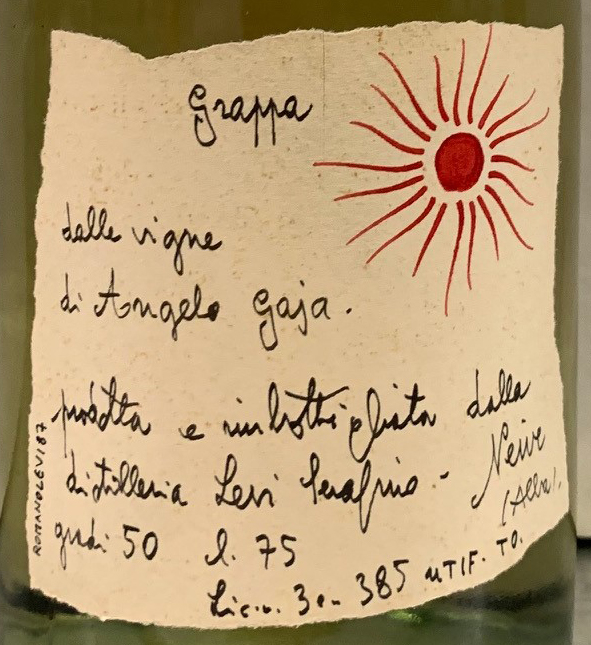 Grappa
dalle vigne
di Angelo Gaja.
prodotta e imbottigliata dalla
distilleria Levi Serafino - Neive
(Alba).
gradi 50 l. 75
Lic. n. 385 UTIF. TO.
ROMANOLEVI87